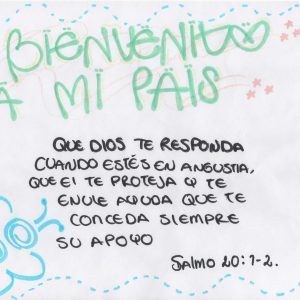 BIENVENITO
A MI PAÏS
QUE DIOS TE RESPONDA
CUANDO ESTÉS EN ANGUSTIA,
QUE EL TE PROTEJA Y TE
ENVIE AYUDA QUE TE
CONCEDA SIEMPRE
SU APOYO
Salmo 20:1-2.